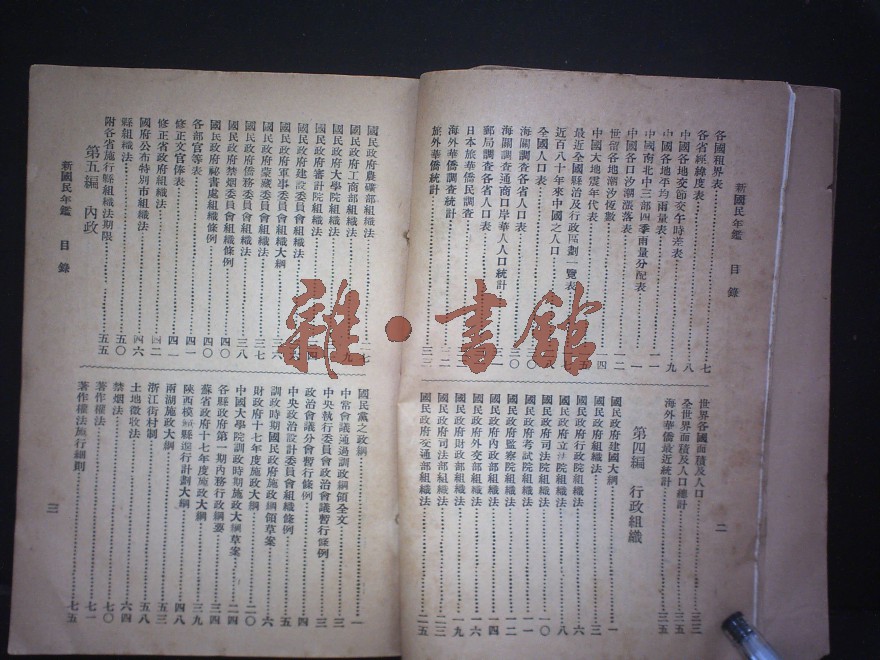 新國民年鑑 目錄
二
各國租界表……七
各省經緯度表……八
中國各地交節交午時差表……九
中國各地平均雨量表……一一
中國南北中三部四季雨量分配表
中國各口汐潮漲落表……一二
世留各地潮汐恆數
中國大地震年代表……一四
最近全國縣治及行政區劃一覽表
近百八十年來中國之人口
全國人口表
海關調查各省人口表……三〇
海關調查通商口岸華人人口統計
郵局調查各省人口表
日本旅華僑民調查
海外華僑調查統計
旅外華僑統計
世界各國面積及人口……三三
全世界面積及人口總計……三五
海外華僑最近統計……三五
第四編 行政組織
國民政府建國大綱……一
國民政府組織法……三
國民政府行政院組織法……六
國民政府立法院組織法……八
國民政府司法院組織法……一〇
國民政府考試院組織法……一一
國民政府監察院組織法……一二
國民政府內政部組織法……一四
國民政府外交部組織法……一六
國民政府財政部組織法……一九
國民政府司法部組織法……二三
國民政府交通部組織法……二五
國民政府農礦部組織法……二七
國民政府工商部組織法
國民政府大學院組織法
國民政府審計院組織法
國民政府建設委員會組織法
國民政府軍事委員會組織大綱
國民政府蒙藏委員會組織法……三七
國民政府僑務委員會組織法……三八
國民政府禁烟委員會組織條例……四〇
國民政府祕書處組織條例……四〇
各部官等表……四一
修正文官俸表……四一
修正省政府組織法……四二
國府公布特別市組織法……四六
縣組織法……五〇
附各省施行縣組織法期限……五五
第五編 內政
新國民年鑑 目錄
三
國民黨之政綱……一
中常會議通過訓政綱領全文……三
中央執行委員會政治會議暫行條例……三
政治會議分會暫行條例……四
中央政治設計委員會組織條例……五
訓政時期國民政府施政綱領草案……六
財政府十七年度施政大綱……二〇
中國大學院訓政時期施政大綱草案……二四
各縣政府第一期內務行政綱要……三四
蘇省政府十七年度施政大綱……三九
陝西模範縣進行計劃大綱……四八
兩湖施政大綱……五三
浙江街村制……五八
土地徵收法……六四
禁烟法……七〇
著作權法……七一
著作權法施行細則……七五
雜·書館